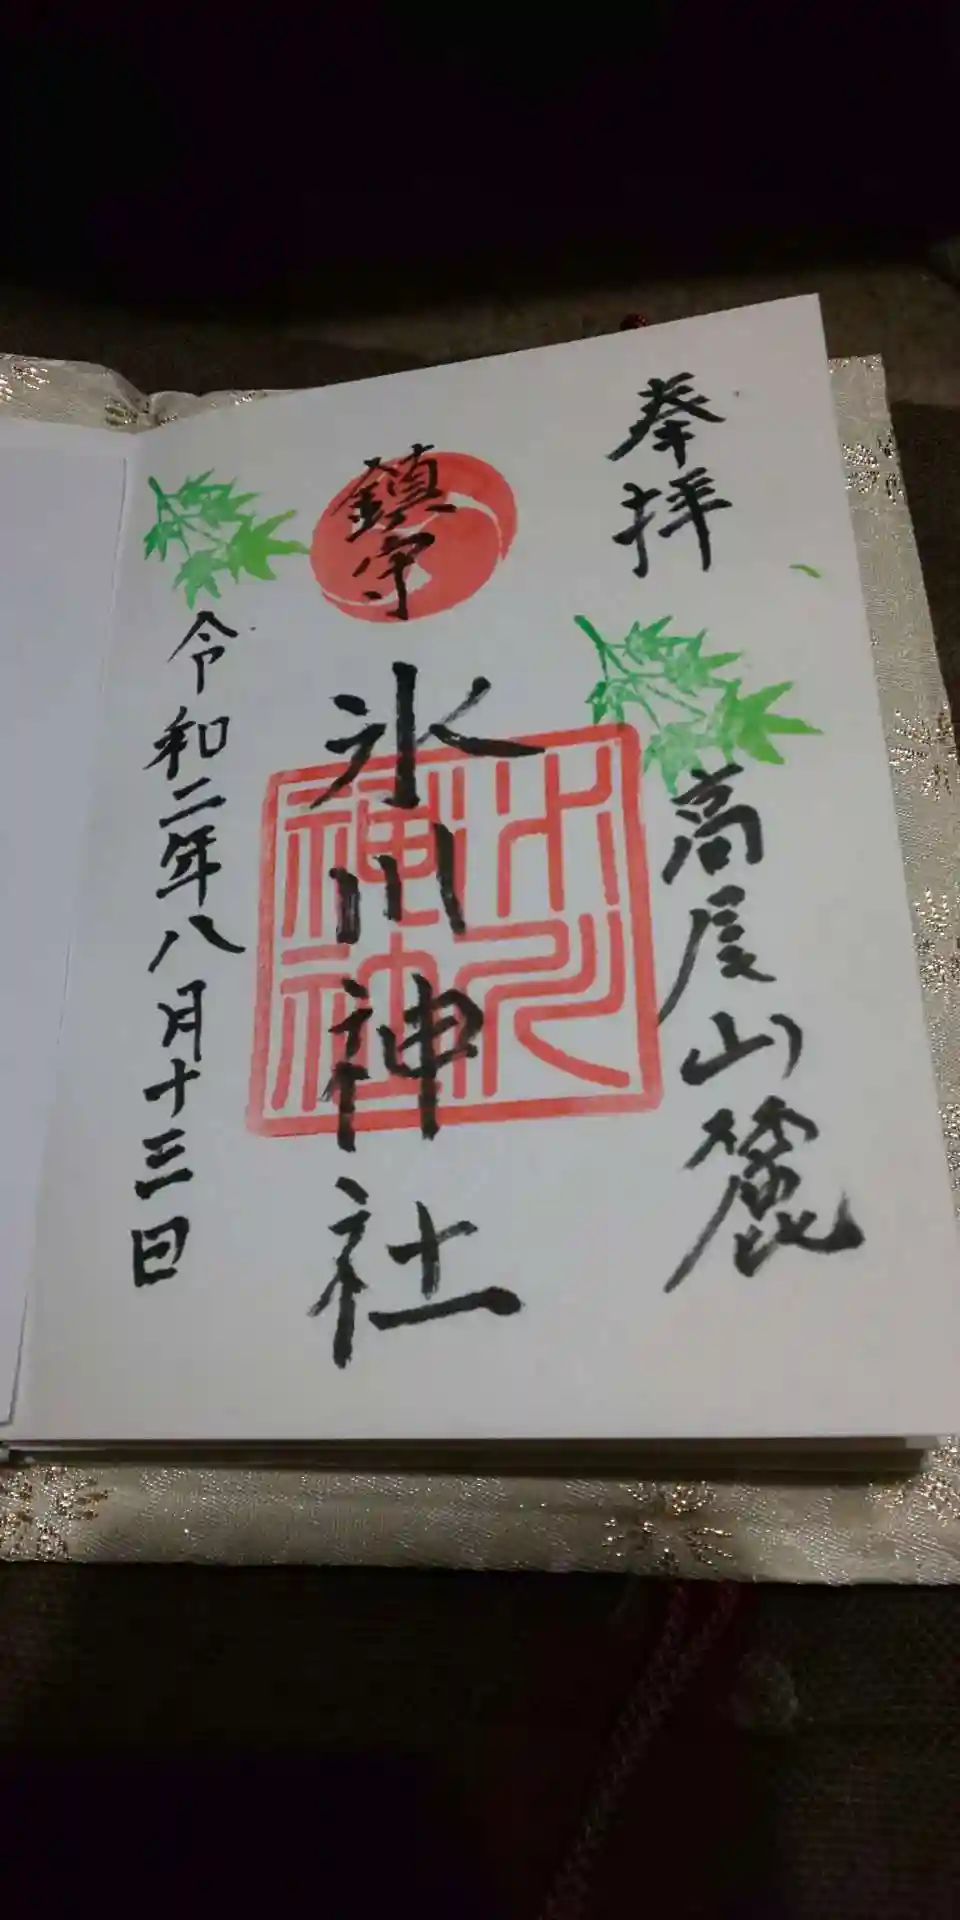 奉拝
高尾山麓
鎮守
氷川神社
氷川神社
令和二年八月十三日